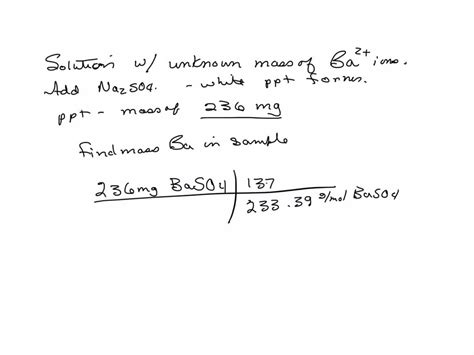 Solution w/ unknown mass of Ba²⁺ ions.
Add Na₂SO₄. - white ppt forms.
ppt - mass of 236 mg
Find mass Ba in sample
236mg BaSO₄ | 137
233.39 g/mol BaSO₄